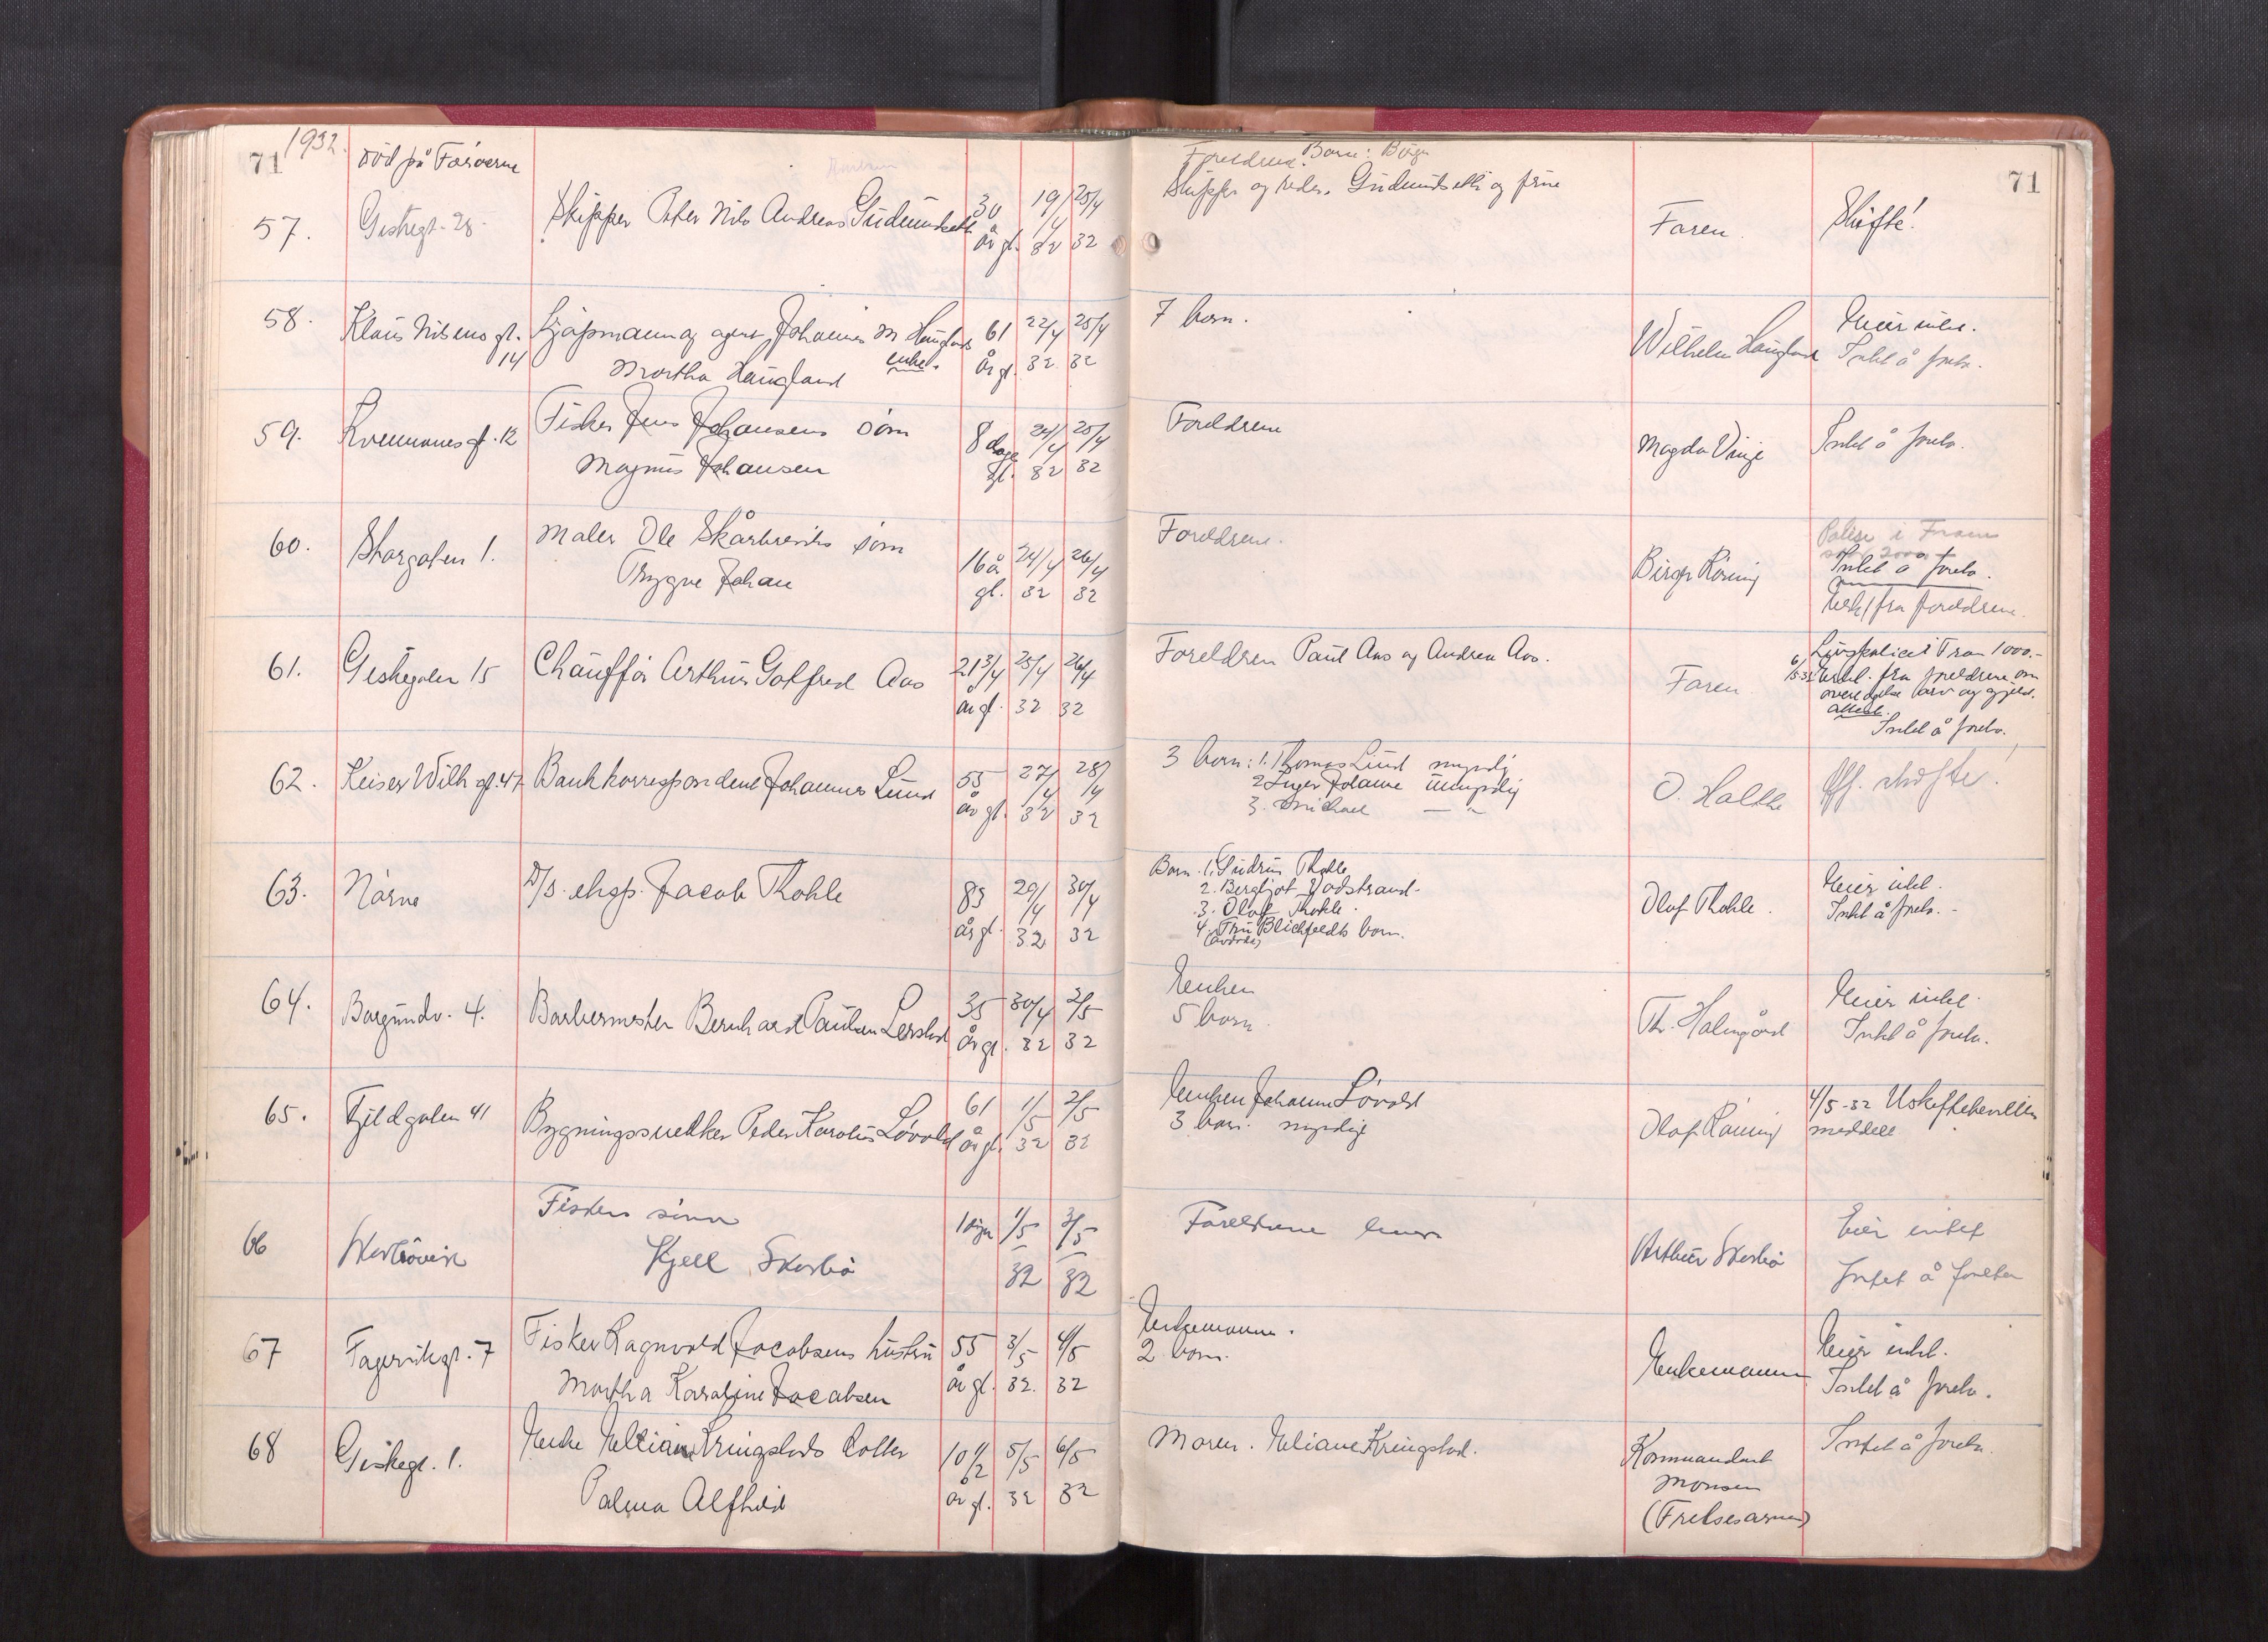 71 1932. død på Færøerne
57. Giskegt. 28. Skipper Peter Nils Andreas Gudmundseth 30 år gl. 19/4 32 25/4 32
Foreldrene. Barn: Börge
Skipper og reder. Gudmundseth og frue
Faren. Skifte! 71
58. Klaus Nilsens gt. 14 Kjøpmann og agent Johannes M Haugland
enke. Martha Haugland 61 år gl. 22/4 32 25/4 32
7 barn. Wilhelm Haugland Eier intet.
Intet å foreta.
59. Kremmergt. 12 Fisker Jens Johansens sønn
Magnus Johansen 8 dage gl. 24/4 32 25/4 32
Foreldrene Magda Vinje Intet å foreta.
60. Storgaten 1. Maler Ole Skårbreviks sønn
Trygve Johan 16 år gl. 24/4 32 26/4 32
Foreldrene. Birger Röning
Polise i Fram
2000
Intet å foreta.
Erkl. fra foreldrene.
61. Giskegaten 15 Chauffør Arthur Gotfred Aas 21 3/4 år gl. 25/4 32 26/4 32
Foreldrene Paul Aas og Andrea Aas. Faren.
Livspolice i Fram 1000.-
6/5-32 Erkl. fra foreldrene om
overtagelse arv og gjeld.
Attest.
Intet å foreta.
62. Keiser Wilh gt. 47 Bankkorrespondent Johannes Lund 55 år gl. 27/4 32 28/4 32
3 barn: 1. Thomas Lund myndig
2. Inger Johanne umyndig
3. Michael — " —
O. Holthe Off. skifte!
63. Nörve D/S. eksp. Jacob Thohle 83 år gl. 29/4 32 30/4 32
Barn. 1. Gudrun Thohle
2. Bergljot Vadstrand.
3. Olaf Thohle.
4. Fru Blichfeldts barn.
(avdöd)
Olaf Thohle. Eier intet.
Intet å foreta.
64. Borgundv. 4. Barbermester Bernhard Paulsen Lerstad 35 år gl. 30/4 32 2/5 32
Enken
5 barn. Th. Holmgård Eier intet.
Intet å foreta.
65. Fjeldgaten 41 Bygningssnekker Peder Karolus Lövold 61 år gl. 1/5 32 2/5 32
Enken Johanne Lövold
3 barn. myndige
Olaf Röning 4/5-32 Uskiftebevilling
meddelt
66 Skarbövik Fiskers sønn
Kjell Skarbö 1 dögn 1/5 32 3/5 32
Foreldrene lever Arthur Skarbö Eier intet
Intet å foreta
67 Fagervikgt. 7 Fisker Ragnvald Jacobsens hustru
Martha Karoline Jacobsen 55 år gl. 3/5 32. 4/5 32
Enkemannen.
2 barn. Enkemannen Eier intet.
Intet å foreta.
68 Giskegt. 1. Enke Eliane Kringstads datter
Palma Alfhild 10 1/2 år gl. 5/5 32 6/5 32
Moren. Eliane Kringstad.
Kommandant
Monsen
(Frelsesarmen)
Intet å foreta.